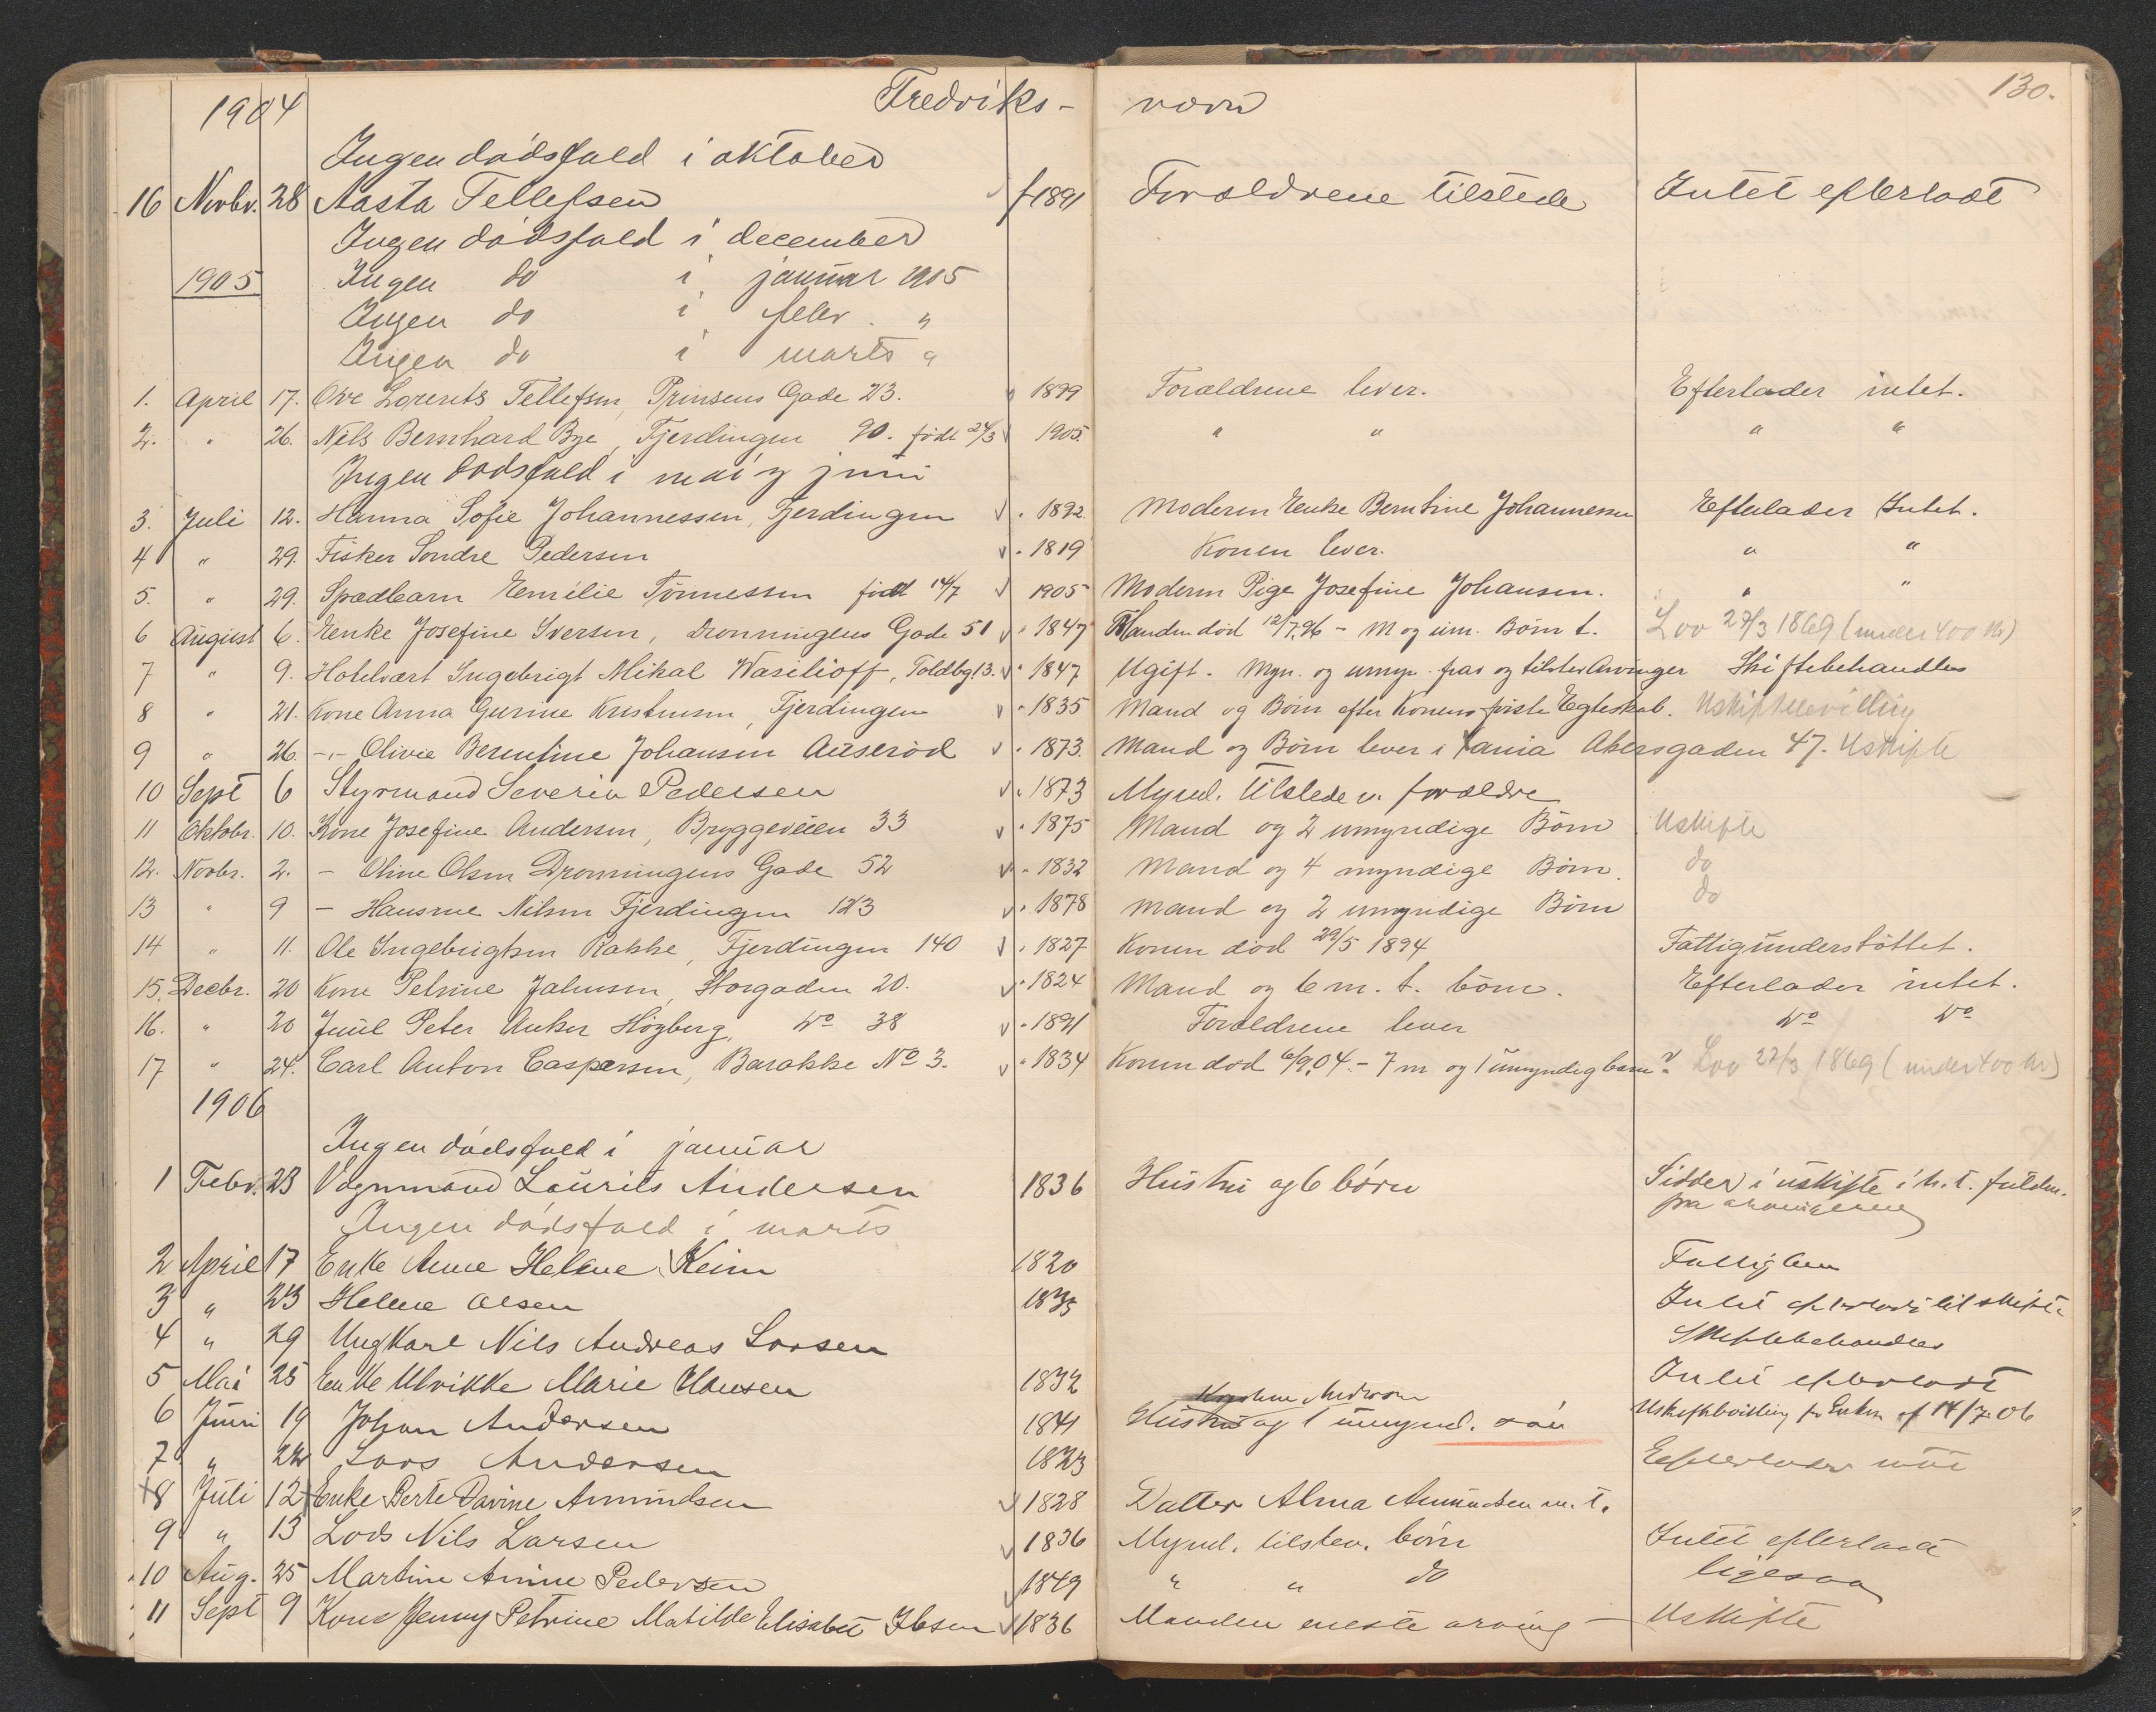 130.
1904 Fredriks- værn
Ingen dødsfald i oktober
16 Novbr. 28 Aasta Tellefsen f 1891 Forældrene tilstede Intet efterladt
Ingen dødsfald i december
1905 Ingen do i januar 1905
Ingen do i febr. "
Ingen do i marts "
1. April 17. Ove Lorents Tellefsen, Prinsens Gade 23. " 1899 Forældrene lever. Efterlader intet.
2. " 26. Nils Bernhard Bye, Fjerdingen 90. født 24/3 1905. " " " "
Ingen dødsfald i mai og juni
3. Juli 12. Hanna Sofie Johannessen, Fjerdingen " 1892. Moderen Enke Berntine Johannessen Efterlader Intet.
4 " 29. Fisker Sondre Pedersen " 1819 Konen lever. " "
5. " 29. Spædbarn Emilie Tønnessen født 14/7 1905 Moderen Pige Josefine Johansen. " "
6 August 6. Enke Josefine Iversen, Dronningens Gade 51 " 1847 Manden død 12/7.96 - M og um. Børn t. Lov 27/3 1869 (under 400 Kr)
7 " 9. Hotelvært Ingebrigt Mikal Wasilioff, Toldbg. 13. " 1847 Ugift. Myn. og umyn. frav og tilstev Arvinger Skiftebehandles
8 " 21. Kone Anna Gurine Kristensen, Fjerdingen " 1835 Mand og Børn efter Konens første Egteskab. Uskiftebevilling
9 " 26. -"- Olivie Berntine Johansen Auserød " 1873. Mand og Børn lever i Xania Akersgaden 47. Uskifte
10 Sept 6 Styrmand Severin Pedersen " 1873 Mynd. tilstedev. forældre
11 Oktobr. 10. Kone Josefine Andersen, Bryggeveien 33 " 1875 Mand og 2 umyndige Børn Uskifte
12. Novbr. 2. - Oline Olsen Dronningens Gade 52 " 1832 Mand og 4 myndige Børn. do
13 " 9 - Hansine Nilsen Fjerdingen 123 " 1878 Mand og 2 umyndige Børn do
14 " 11. Ole Ingebrigtsen Rakke, Fjerdingen 140 " 1827 Konen død 29/5 1894 Fattigunderstøttet.
15. Decbr. 20 Kone Petrine Jahnsen, Storgaden 20. " 1824 Mand og 6 m. t. børn. Efterlader intet.
16. " 20 Juul Peter Anker Høgberg, Do 38 " 1891 Forældrene lever Do Do
17 " 24. Carl Anton Caspersen, Barakke No 3. " 1834 Konen død 6/9.04. - 7 m og 1 umyndig barn? Lov 27/3 1869 (under 400 Kr)
1906
Ingen dødsfald i januar
1 Febr. 23 Vognmand Laurits Andersen 1836 Hustru og 6 børn Sidder i uskifte i h. t. fuldm.
fra arvingerne
Ingen dødsfald i marts
2 April 17 Enke Anne Helene Keim 1820 Fattiglem
3 " 23 Helene Olsen 1835 Intet efterladt til skifte
4 " 29 Ungkarl Nils Andreas Larsen Skiftebehandles
5 Mai 25 Enke Ulrikke Marie Hansen 1832 Intet efterladt
6 Juni 19 Johan Andersen 1841 Hustru og 1 umynd. søn Uskiftebevilling for Enken af 14/7 06
7 " 22 Lars Andersen 1823 Efterlader intet
8 Juli 12 Enke Berte Davine Amundsen 1828 Datter Alma Amundsen m. t.
9 " 13 Lods Nils Larsen 1836 Mynd. tilstev. børn Intet efterladt
10 Aug. 25 Martine Amine Pedersen 1849 " " do ligesaa
11 Sept 9 Kone Jenny Petrine Matilde Elisabet Ibsen 1836 Manden eneste arving - Uskifte